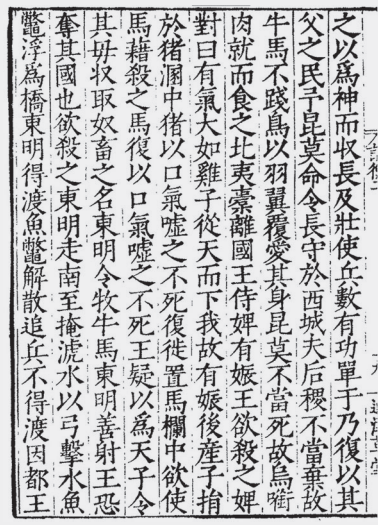 之以爲神而収長及壯使兵數有功單于乃復以其
父之民予昆莫命令長守於西城夫后稷不當棄故
牛馬不踐鳥以羽翼覆愛其身昆莫不當死故烏啣
肉就而食之北夷橐離國王侍婢有娠王欲殺之婢
對曰有氣大如雞子從天而下我故有娠後産子捐
於猪溷中猪以口氣噓之不死復徙置馬欄中欲使
馬藉殺之馬復以口氣噓之不死王疑以爲天子令
其毋収取奴畜之名東明令牧牛馬東明善射王恐
奪其國也欲殺之東明走南至掩淲水以弓擊水魚
鱉浮爲橋東明得渡魚鱉解散追兵不得渡因都王